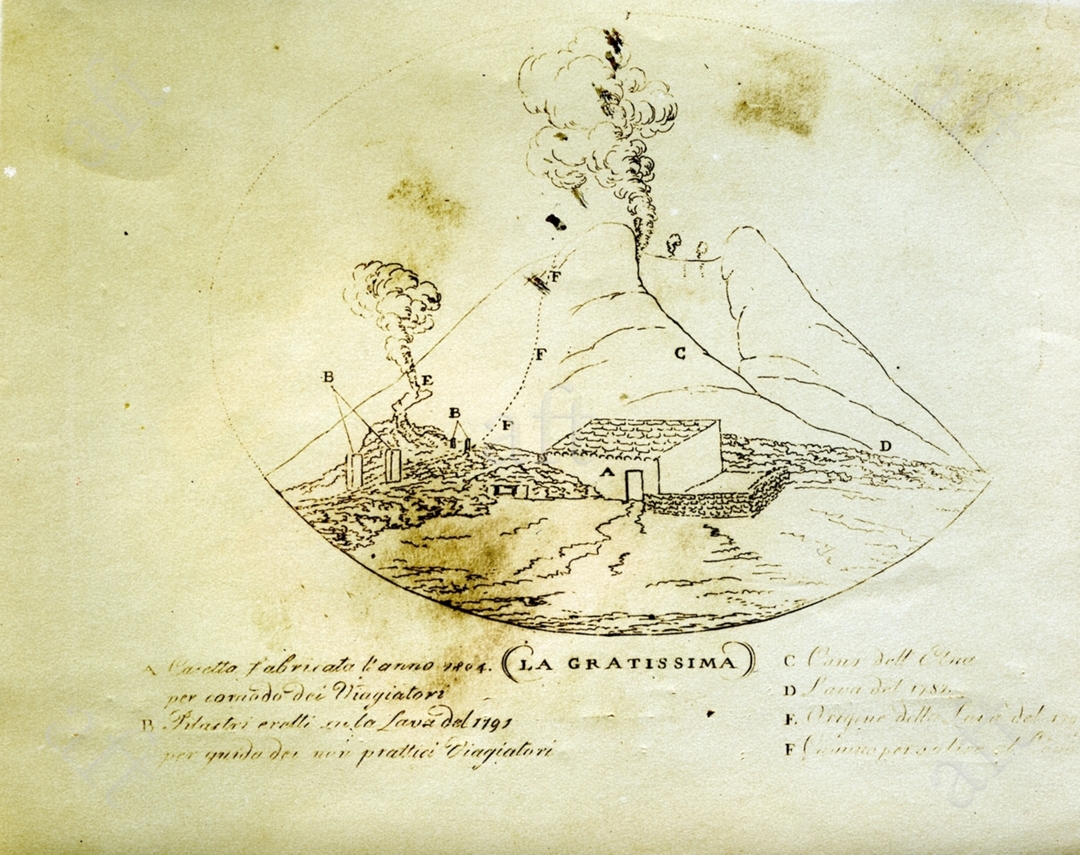 F
F
F
C
B
E
B
F
D
A
A Casetta fabricata l'anno 1804.
per comodo dei Viagiatori
B Pilastri eretti su la Lava del 1791
per guida dei non prattici Viagiatori
(LA GRATISSIMA)
C Cono dell'Etna
D Lava del 1787
E Origine della Lava del
F Camino per salire al